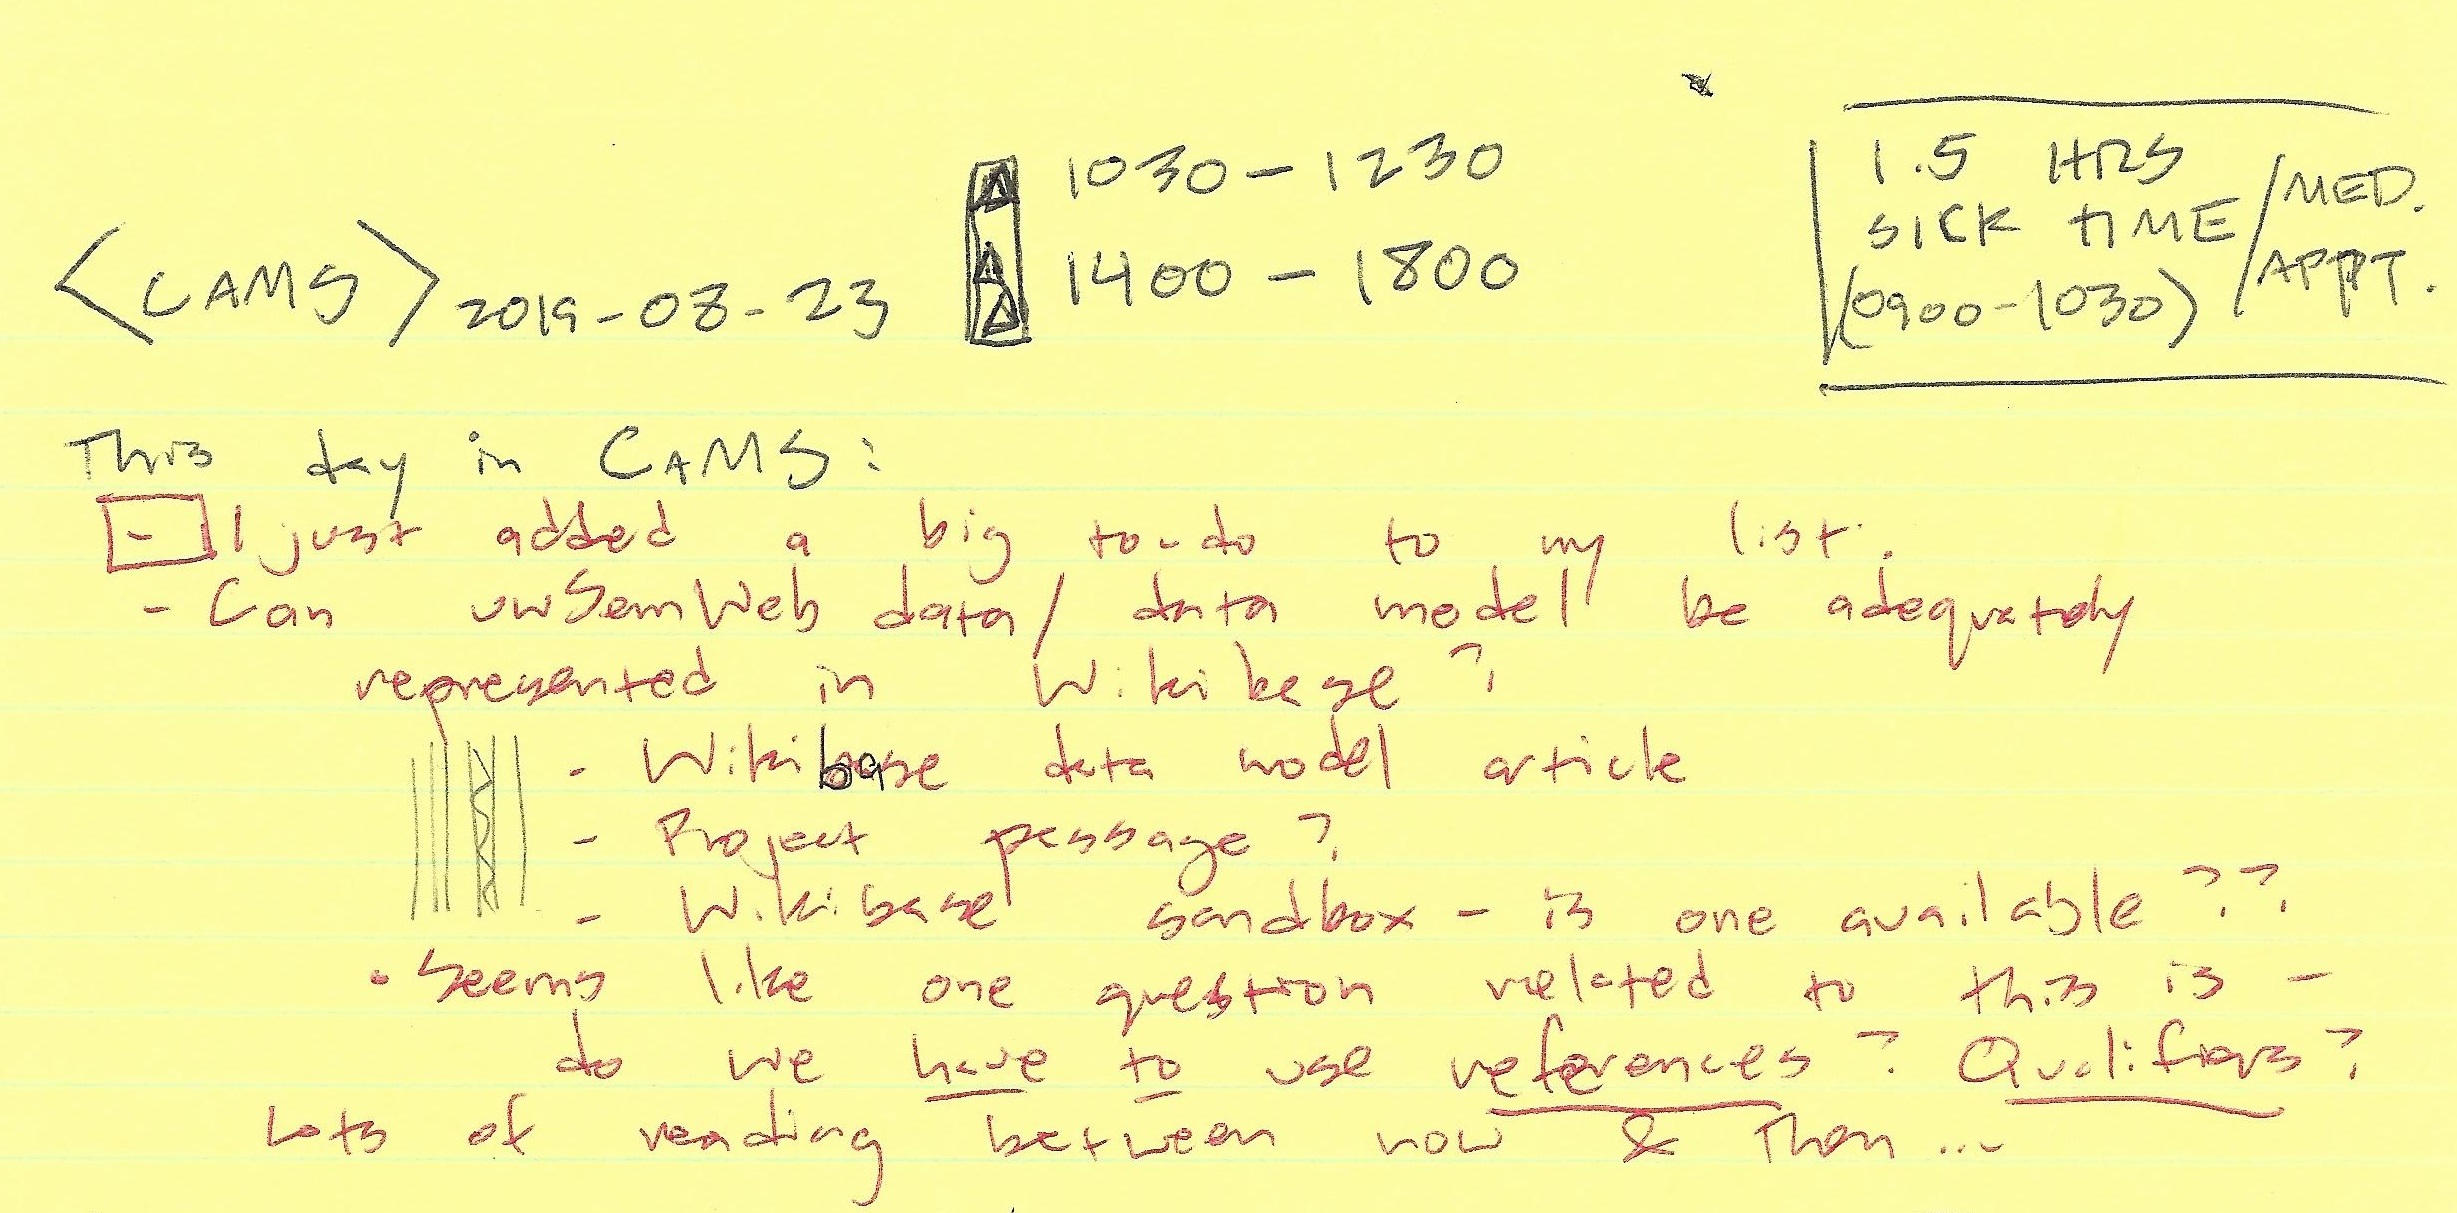 1030-1230
1400-1800
<CAMS> 2019-08-23
1.5 HRS
SICK TIME / MED. APPT.
(0900-1030)
This day in CAMS:
- I just added a big to-do to my list.
- Can uwSemWeb data/data model be adequately
represented in Wikibase?
- Wikibase data model article
- Project passage?
- Wikibase sandbox - is one available??
• Seems like one question related to this is -
do we have to use references? Qualifiers?
Lots of reading between now & then...